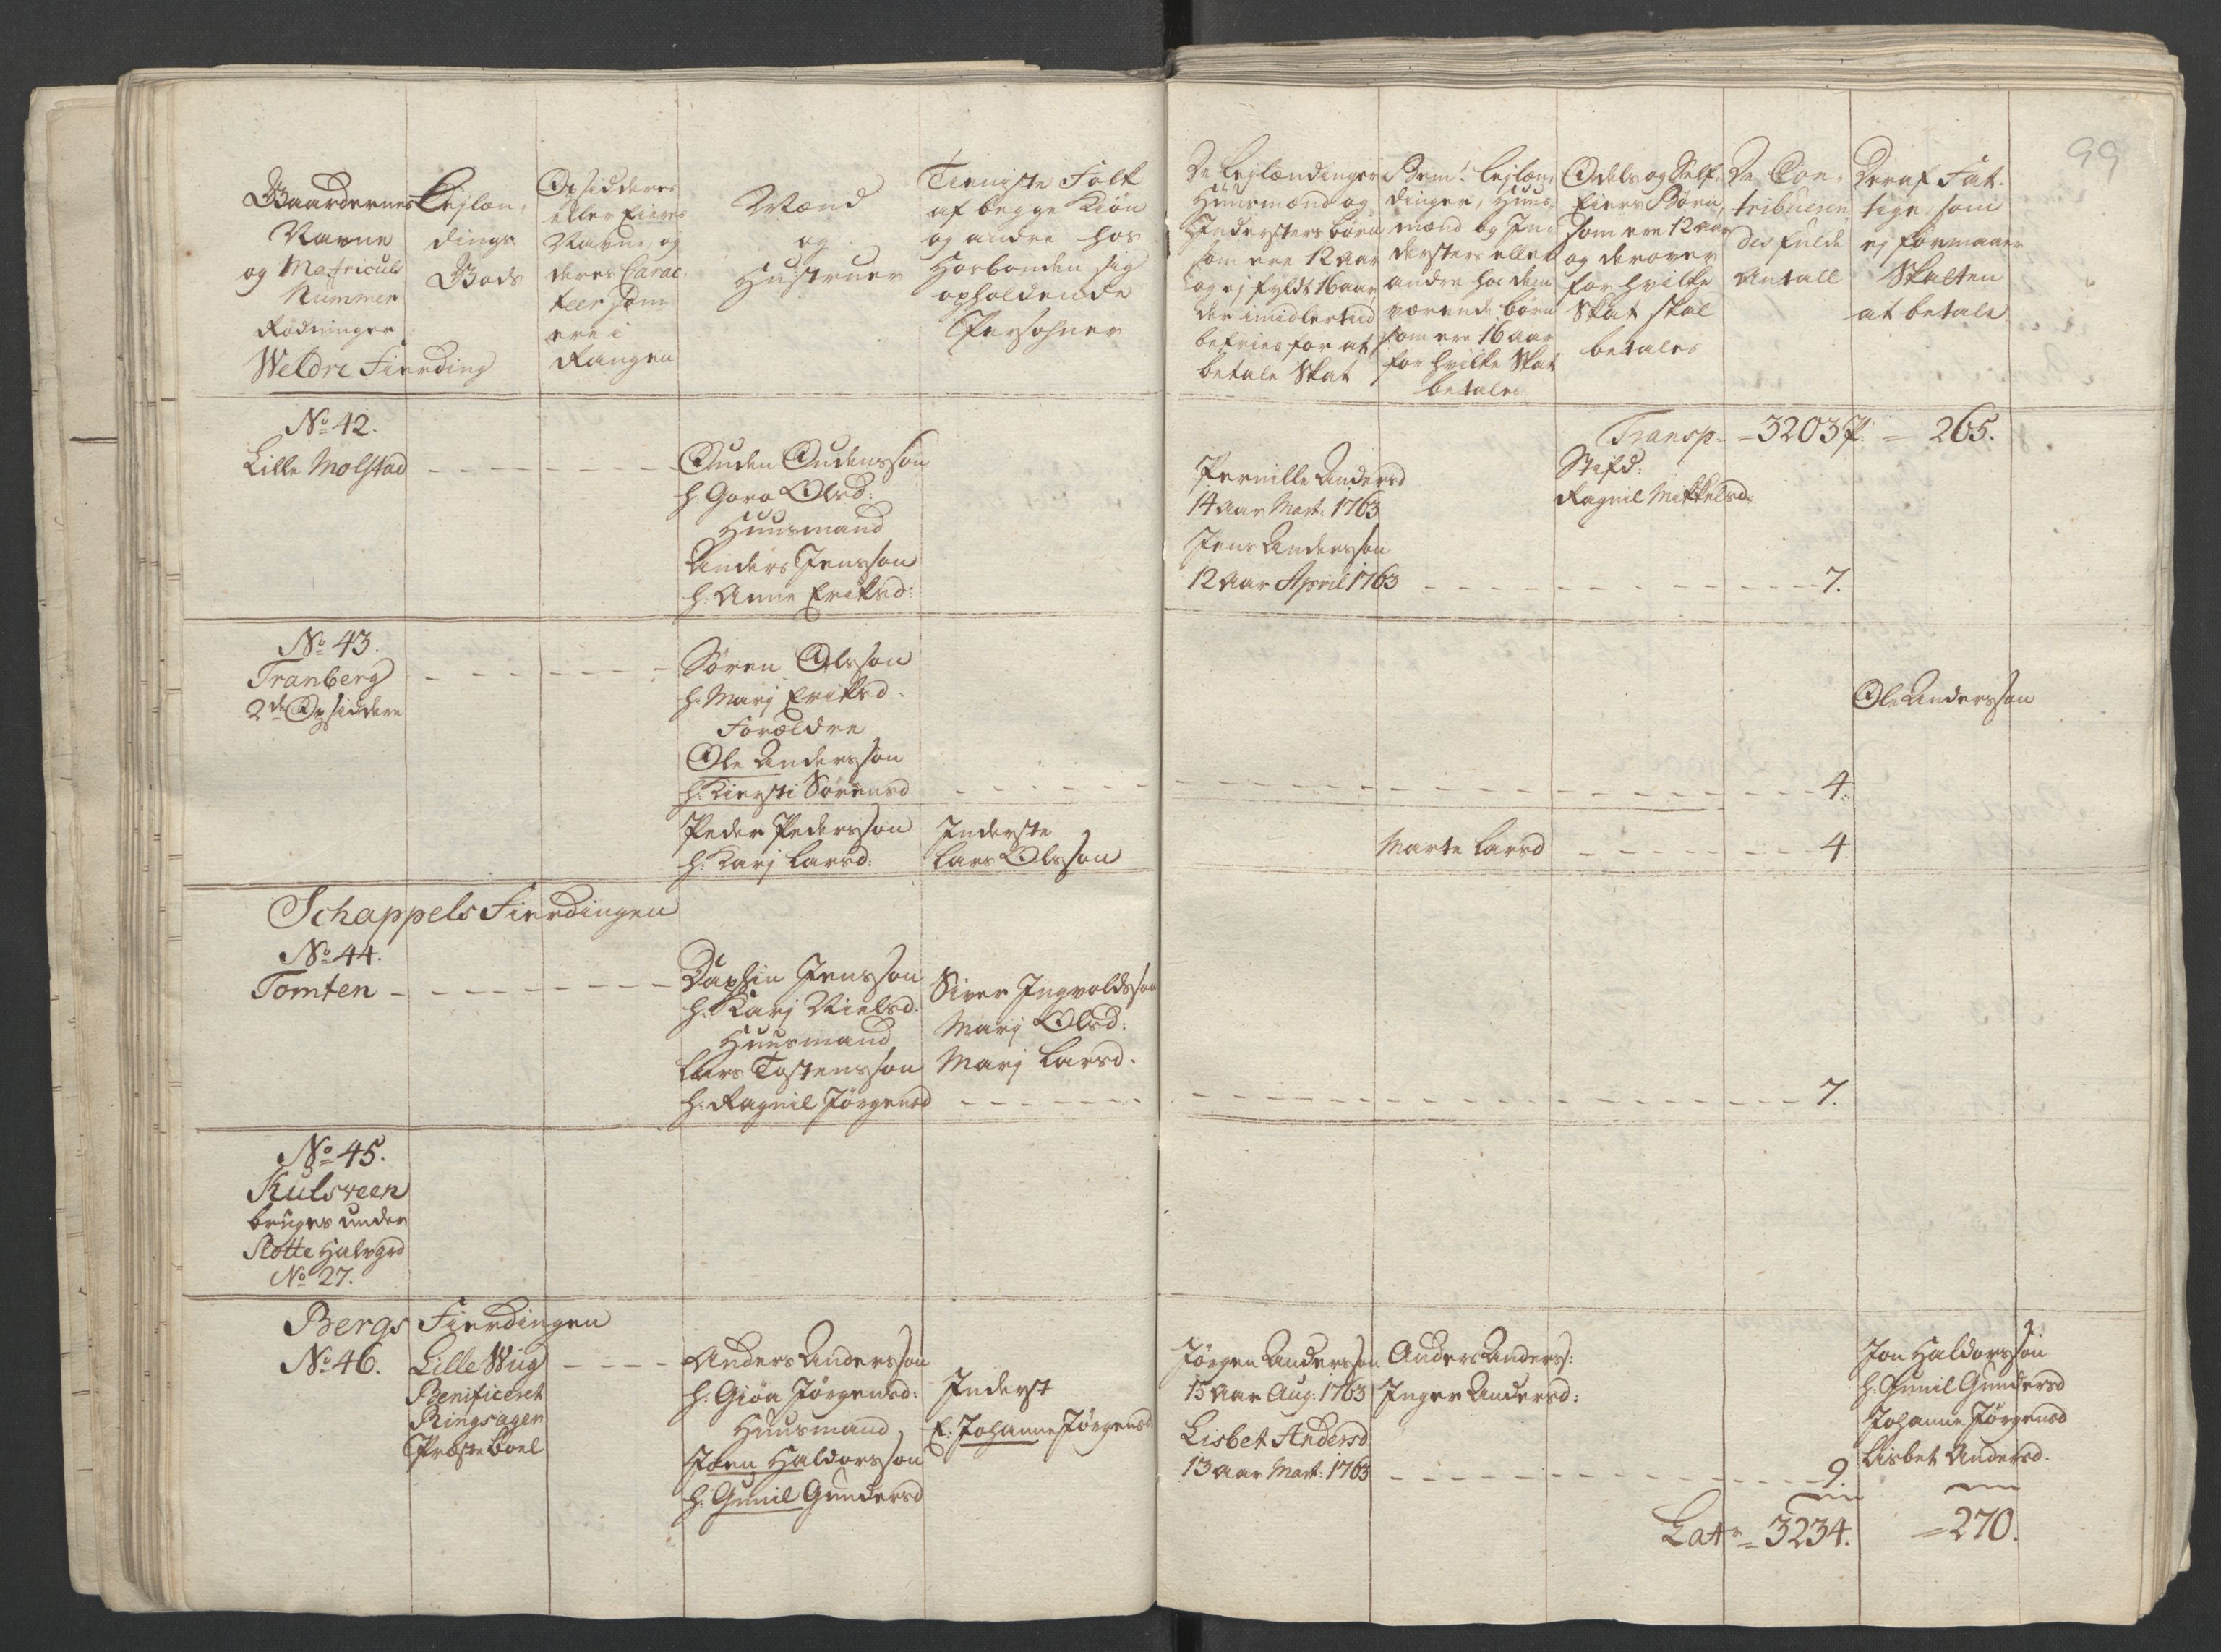 99
Gaardernes
Navne
og Matriculs
Nummer
Rødninger
Weldre Fierding
Lejlæn-
dings
Gods
Opsidderes
eller Eieres
Navne og
deres Carac-
teer som
ere i
Rangen
Mænd
og
Hustruer
Tieniste Folk
af begge Kiøn
og andre hos
Hosbonden sig
opholdende
Persohner
De Lejlændinger
Huusmænd og
Indersters børn
som ere 12 aar
og ej fyldt 16 aar,
der imidlertiid
befries for at
betale Skat
Bem.t Lejlæn-
dinger, Huus-
mænd og In-
dersters eller
andre hos dem
værende børn
som ere 16 aar
for hvilke Skat
betales
Odels og Self-
Eiers Børn,
som ere 12 aar
og derover
for hvilke
Skat skal
betales
De Con-
tribueren-
des fulde
Antall
Deraf Fat-
tige, som
ej formaaer
Skatten
at betale
Transp. = 3203 P. = 265.
No 42.
Lille Molstad
Auden Audensson
h. Goro Olsd:
Huusmand
Anders Jensson
h. Anne Eriksd:
Pernille Andersd
14 Aar Mart: 1763
Jens Andersson
12 Aar April 1763
Stifd:
Ragnil Mikkelsd:
7.
No 43.
Tranberg
2de Opsiddere
Søren Olsson
h. Marj Eriksd:
Forældre
Ole Andersson
h. Kiersti Sørensd
Ole Andersson
4.
Peder Pedersson
h. Karj Larsd:
Inderste
Lars Olsson
Marte Larsd
4.
Schappels Fierdingen
No 44.
Tomten
Daphin Jensson
h. Karj Nielsd.
Huusmand
Lars Tostensson
h. Ragnil Jørgensd
Siver Ingvoldsson
Marj Olsd:
Marj Larsd.
7.
No 45.
Kulsveen
bruges under
Slotte Halvgrd
No 27.
Bergs Fierdingen
No 46.
Lille Wiig
Benificeret
Ringsager
Præste boel
Anders Andersson
h. Giøa Jørgensd:
Huusmand
Joen Haldorsson
h. Gunil Gundersd
Inderst
E. Johanne Jørgensd.
Jørgen Andersson
15 Aar Aug: 1763
Lisbet Andersd
13 Aar Mart: 1763
Anders Anders:
Inger Andersd:
9.
Jon Haldorsson
h. Gunil Gundersd
Johanne Jørgensd
Lisbet Andersd.
Latr = 3234. = 270.